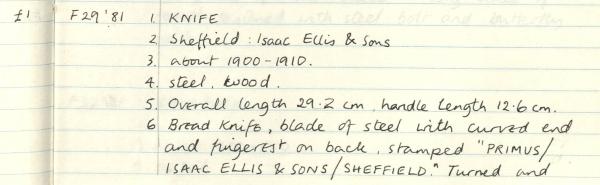 £1 F29'81 1. KNIFE
2. Sheffield : Isaac Ellis & Sons
3. about 1900-1910.
4. steel, wood.
5. Overall length 29.2 cm, handle length 12.6 cm.
6 Bread knife, blade of steel with curved end
and fingerest on back, stamped "PRIMUS/
ISAAC ELLIS & SONS/SHEFFIELD." Turned and